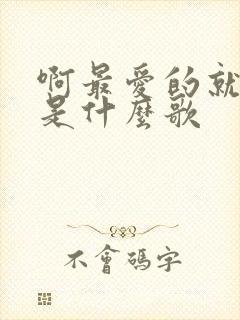 啊最愛的就
是什麼歌
不會碼字